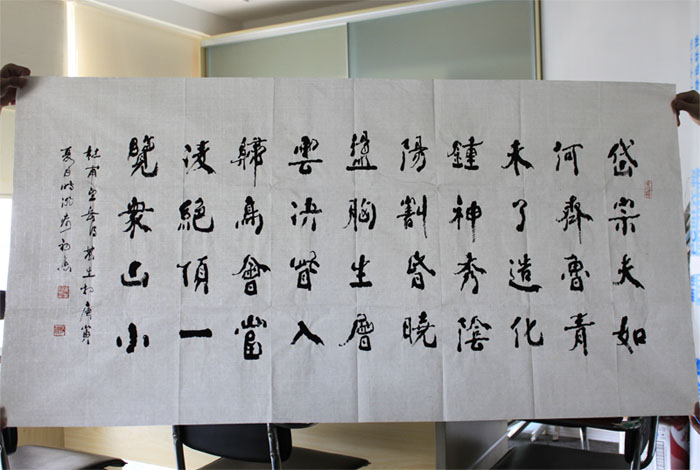 岱宗夫如
河齊魯青
未了造化
鍾神秀陰
陽割昏曉
盪胸生層
雲決眥入
歸鳥會當
淩絕頂一
覽衆山小
杜甫望岳
夏日